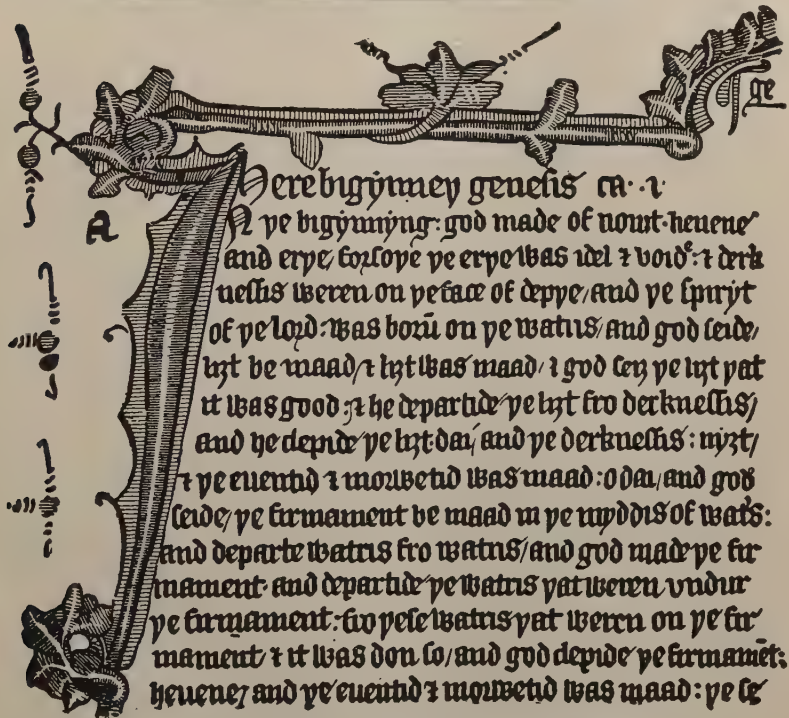 ge
Here bigynneþ genesis ca· ·i
A
IN þe bigynnyng: god made of nouȝt· heuene
and erþe/ forsoþe þe erþe was idel ⁊ voide: ⁊ derk
nessis weren on þe face of depþe/ and þe spiryt
of þe lord: was borū on þe watris/ and god seide/
liȝt be maad/ ⁊ liȝt was maad/ ⁊ god seiȝ þe liȝt þat
it was good: ⁊ he departide þe liȝt fro derknessis/
and he clepide þe liȝt· dai/ and þe derknessis: nyȝt/
⁊ þe euentid ⁊ morwetid was maad: o dai/ and god
seide/ þe firmament be maad in þe myddis of watˢs:
and departe watris fro watris/ and god made þe fir
mament· and departide þe watris þat weren vndur
þe firmament: fro þese watris þat weren on þe fir
mament/ ⁊ it was don so/ and god clepide þe firmamēt:
heuene/ and þe euentid ⁊ morwetid was maad: þe se